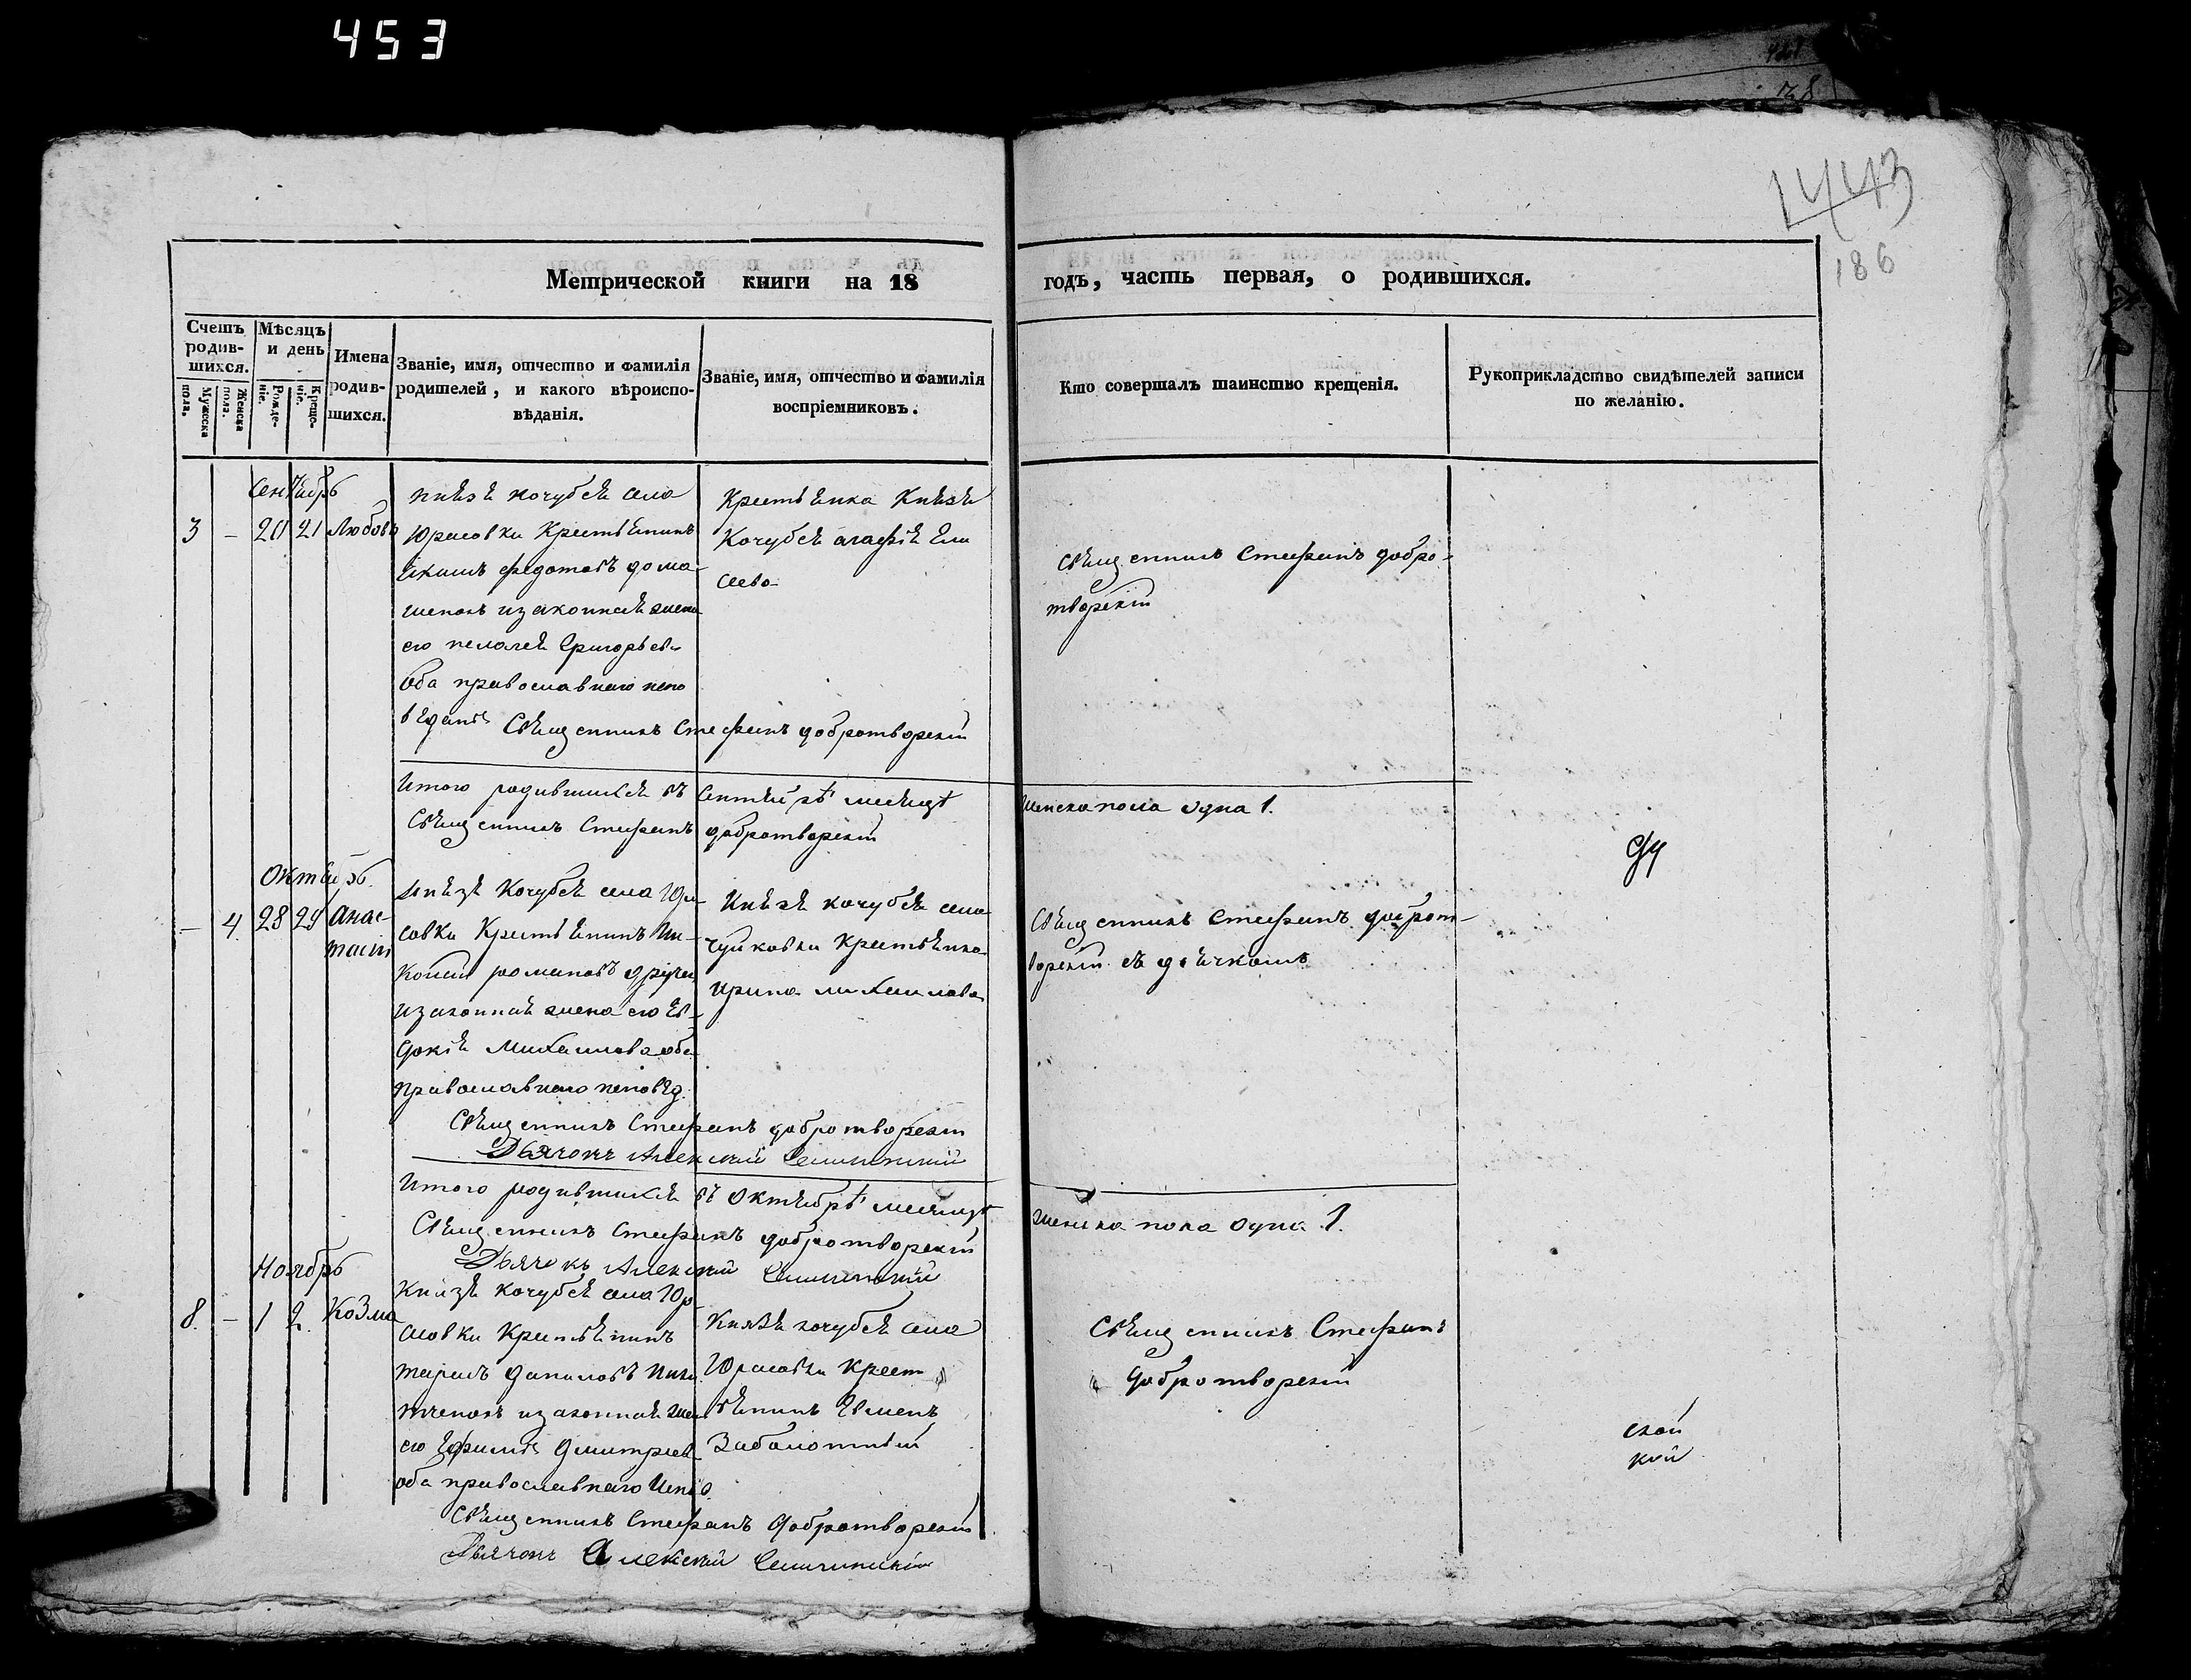 453
1443
186
Метрической книги на 18
годъ, часть первая, о родившихся.
Счетъ родив-шихся.
Мужеска пола.
Женска пола.
Мѣсяцъ и день
Рожде-ніе.
Креще-ніе.
Имена родив-шихся.
Званіе, имя, отчество и фамилія
родителей, и какого вѣроиспо-
вѣданія.
Званіе, имя, отчество и фамилія
воспріемниковъ.
Кто совершалъ таинство крещенія.
Рукоприкладство свидѣтелей записи
по желанію.
Сентябрь
3 – 20 21 Любовь
князя кочубея села
Юрасовки Крестьянинъ
федотовъ дома
шенокъ изаконная жена
его пелагея Григорьев
Оба православнаго испо
вѣданія
Священникъ Стефанъ добротворскій
Крестьянка Князя
Кочубея агафія Ели
сеева
Священникъ Стефанъ добро-
творскій
Итого родившихся въ Сентябрѣ месяцѣ
женска пола одна 1.
Священникъ Стефанъ добротворскій
Октябрь.
– 4. 28 29 Анас-
тасія
Князя Кочубея села Юра-
совки Крестьянинъ
романовъ
изаконная жена его Ев-
докія Михаилова оба
православнаго исповѣд.
Священникъ Стефанъ добротворскій
Дьячокъ Алексий
Князя кочубея села
чуйковки крестьянка
ирина михаилова
Священникъ Стефанъ доброт-
ворскій съ дьячкомъ
Итого родившихся въ Октябрѣ месяцѣ
женска пола одна 1.
Священникъ Стефанъ добротворскій
Дьячокъ Алексий
Ноябрь
8. – 1 2. Козма
Князя кочубея села Юр-
асовки Крестьянинъ
даниловъ
изаконная жена
его Ефимія Дмитриев
оба православнаго Испо
Священникъ Стефанъ Добротворскій
Дьячокъ Алексий
Князя кочубея села
Юрасовки Крест
ьянинъ
Заболотный
Священникъ Стефанъ
Добротворскій
ской
кой